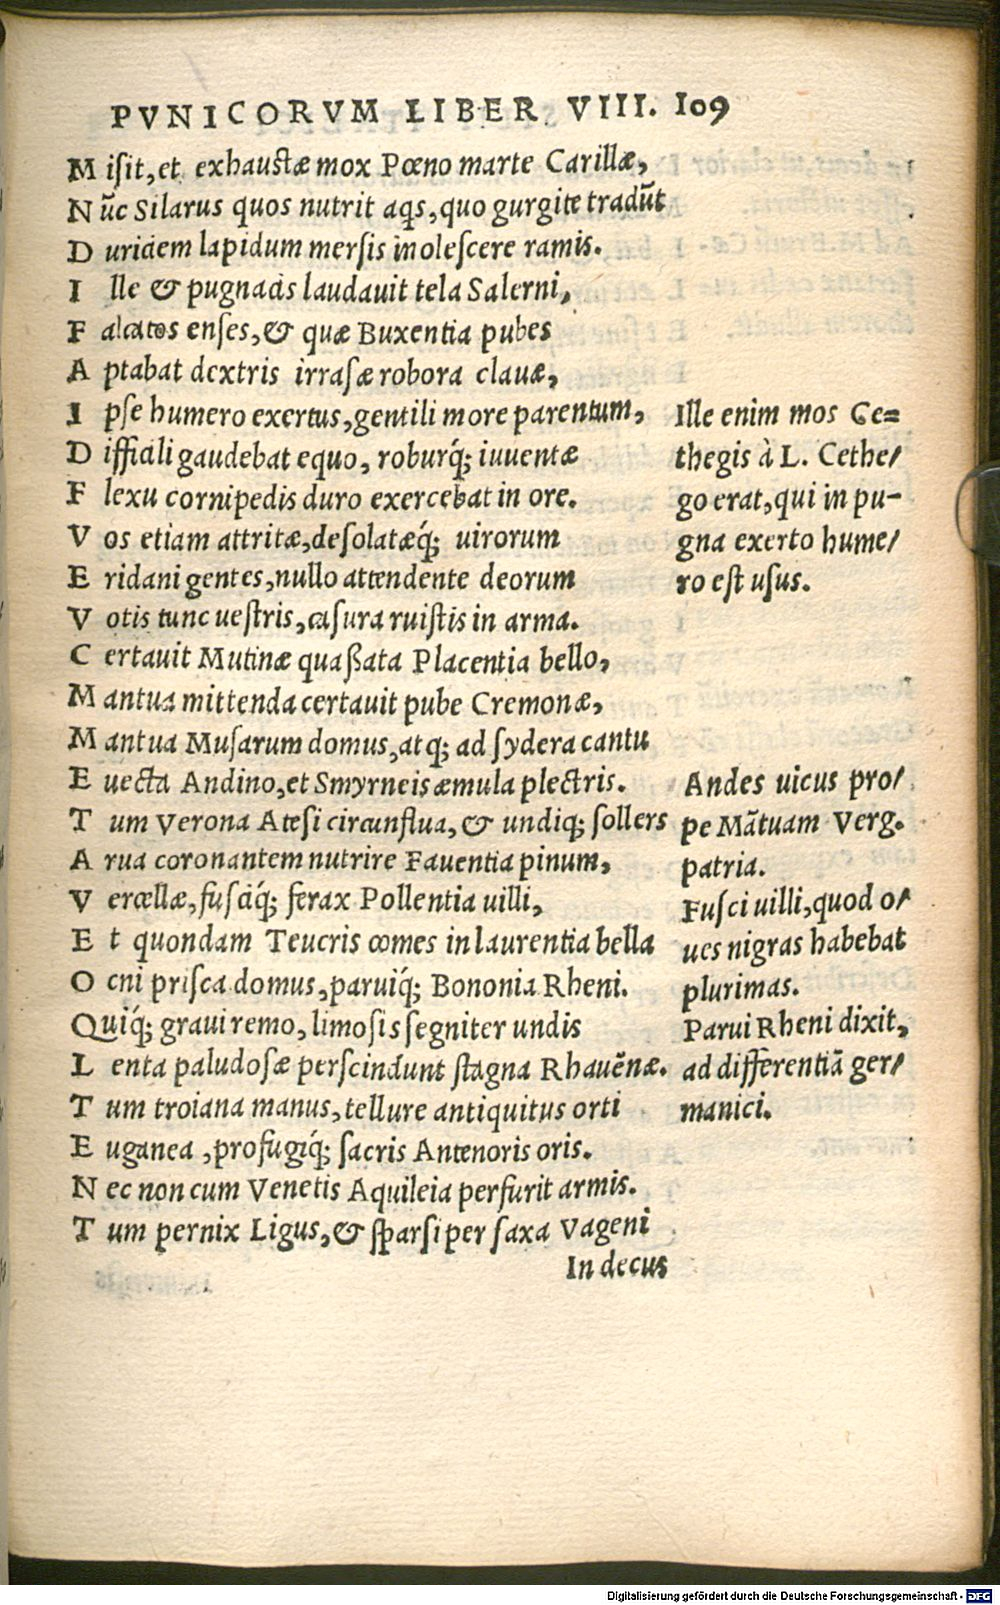 PVNICORVM LIBER VIII. 109
Misit, et exhaustæ mox Pœno marte Carillæ,
Nūc Silarus quos nutrit aqs, quo gurgite tradūt
Duriciem lapidum mersis inolescere ramis.
Ille & pugnacis laudauit tela Salerni,
Falcatos enses, & quæ Buxentia pubes
Aptabat dextris irrasæ robora clauæ,
Ipse humero exertus, gentili more parentum,
Difficili gaudebat equo, roburq́; iuuentæ
Flexu cornipedis duro exercebat in ore.
Vos etiam attritæ, desolatæq́; uirorum
Eridani gentes, nullo attendente deorum
Votis tunc uestris, casura ruistis in arma.
Certauit Mutinæ quaßata Placentia bello,
Mantua mittenda certauit pube Cremonæ,
Mantua Musarum domus, atq; ad sydera cantu
Euecta Andino, et Smyrneis æmula plectris.
Tum Verona Atesi circunflua, & undiq; sollers
Arua coronantem nutrire Fauentia pinum,
Vercellæ, fusciq́; ferax Pollentia uilli,
Et quondam Teucris comes in laurentia bella
Ocni prisca domus, paruiq́; Bononia Rheni.
Quiq́; graui remo, limosis segniter undis
Lenta paludosæ perscindunt stagna Rhauēnæ.
Tum troiana manus, tellure antiquitus orti
Euganea, profugiq́; sacris Antenoris oris.
Nec non cum Venetis Aquileia perfurit armis.
Tum pernix Ligus, & sparsi per saxa Vageni
In decus
Ille enim mos Ce=
thegis à L. Cethe/
go erat, qui in pu-
gna exerto hume/
ro est usus.
Andes uicus pro/
pe Mātuam Verg.
patria.
Fusci uilli, quod o/
ues nigras habebat
plurimas.
Parui Rheni dixit,
ad differentiā ger/
manici.
Digitalisierung gefördert durch die Deutsche Forschungsgemeinschaft - DFG